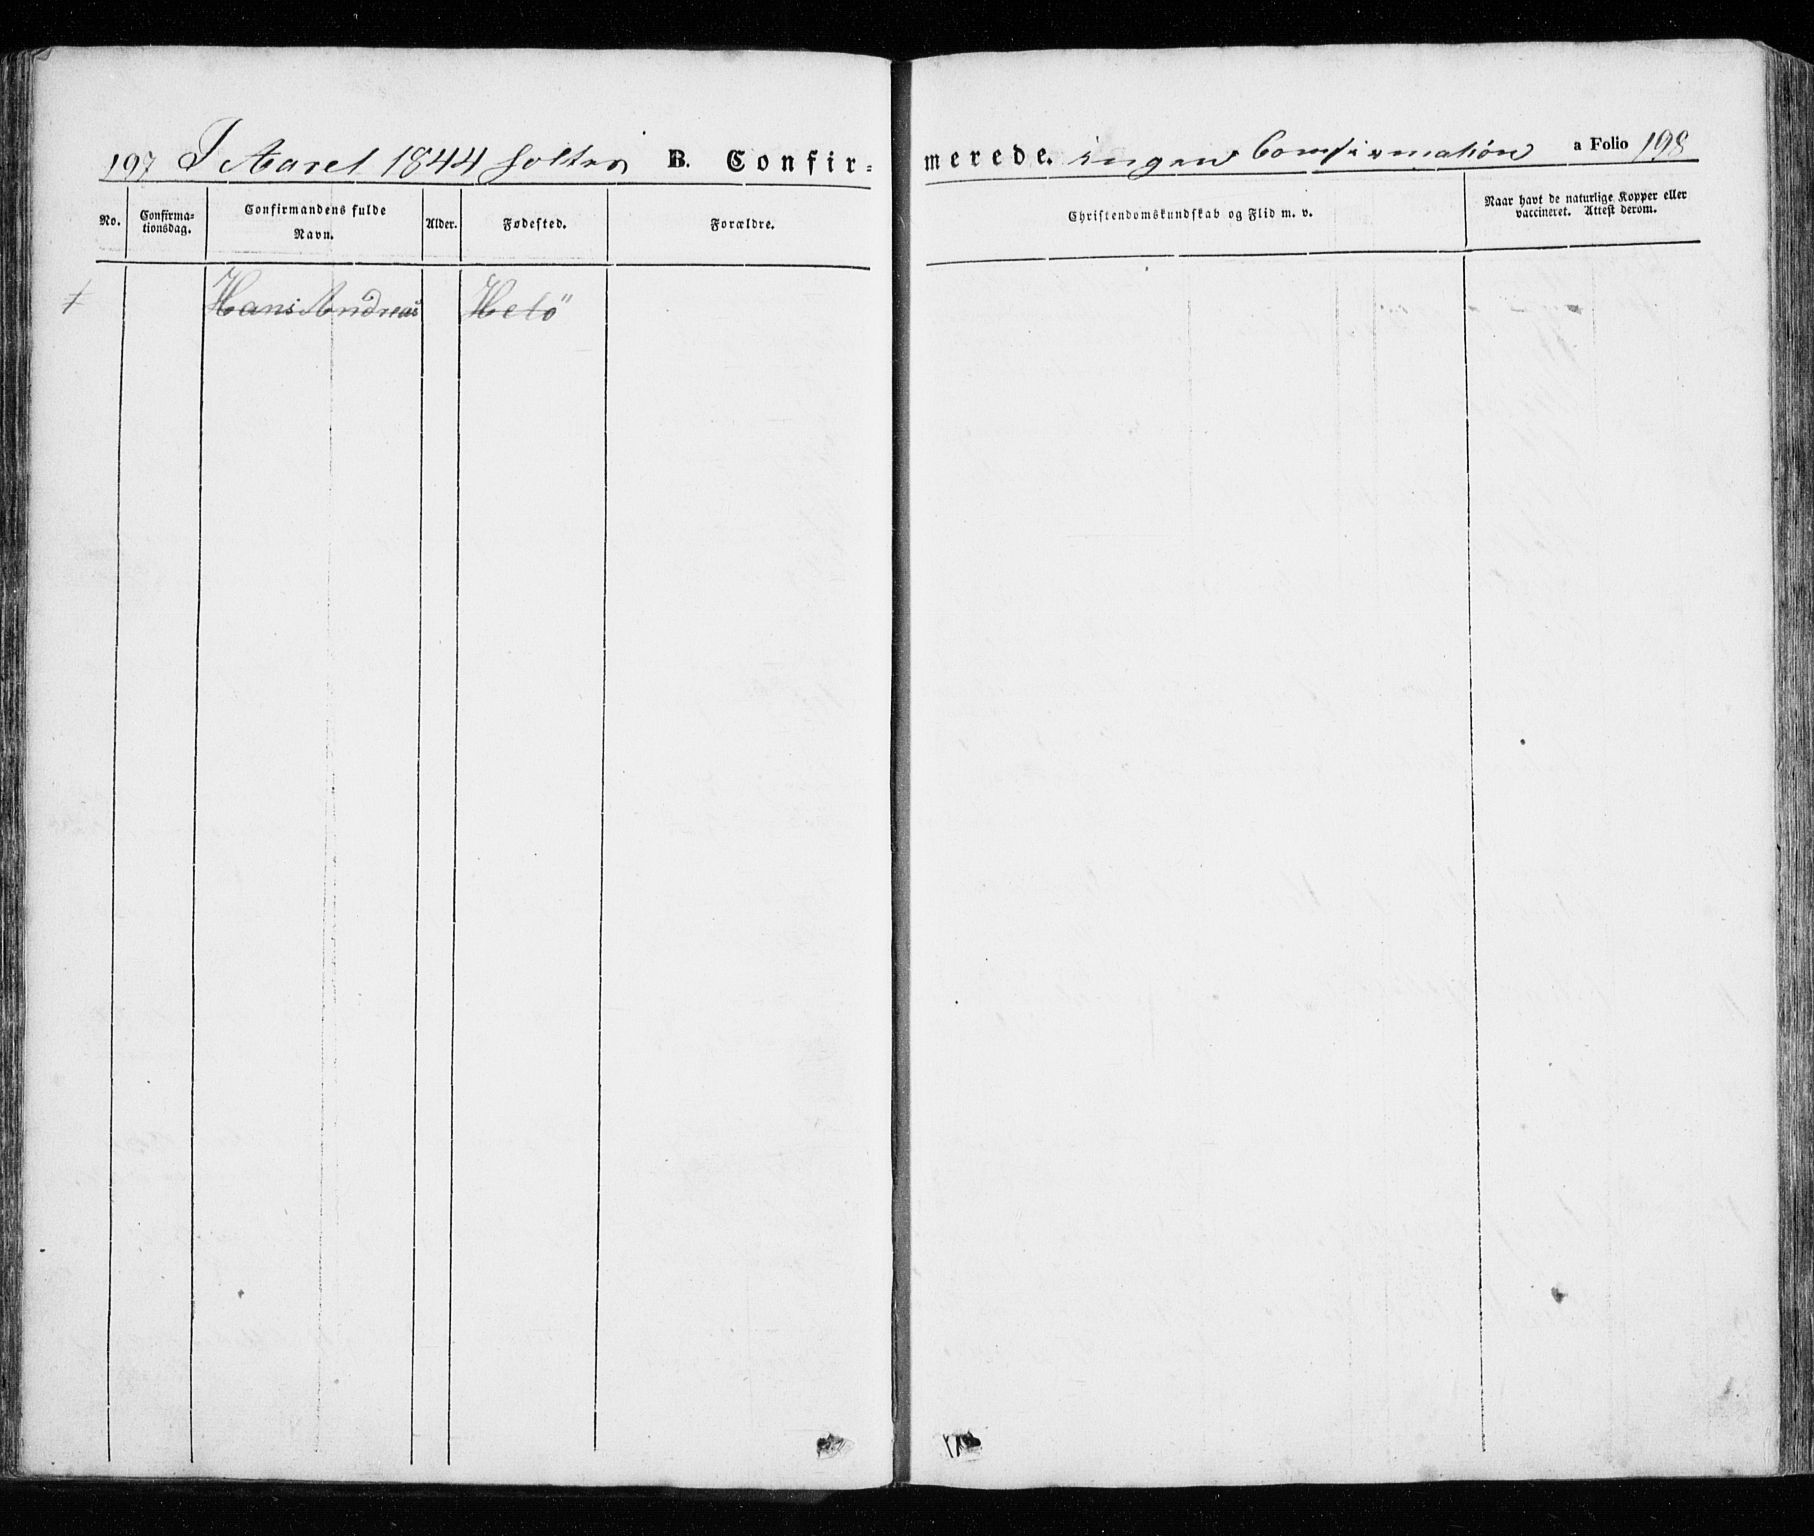 197 I Aaret 1844 holtes B. Confir-
merede. ingen Confirmation a Folio 198
No.
Confirma-
tionsdag.
Confirmandens fulde
Navn.
Alder.
Fødested.
Forældre.
Christendomskundskab og Flid m. v.
Naar havt de naturlige Kopper eller
vaccineret. Attest derom.
Hans Andreas Helö